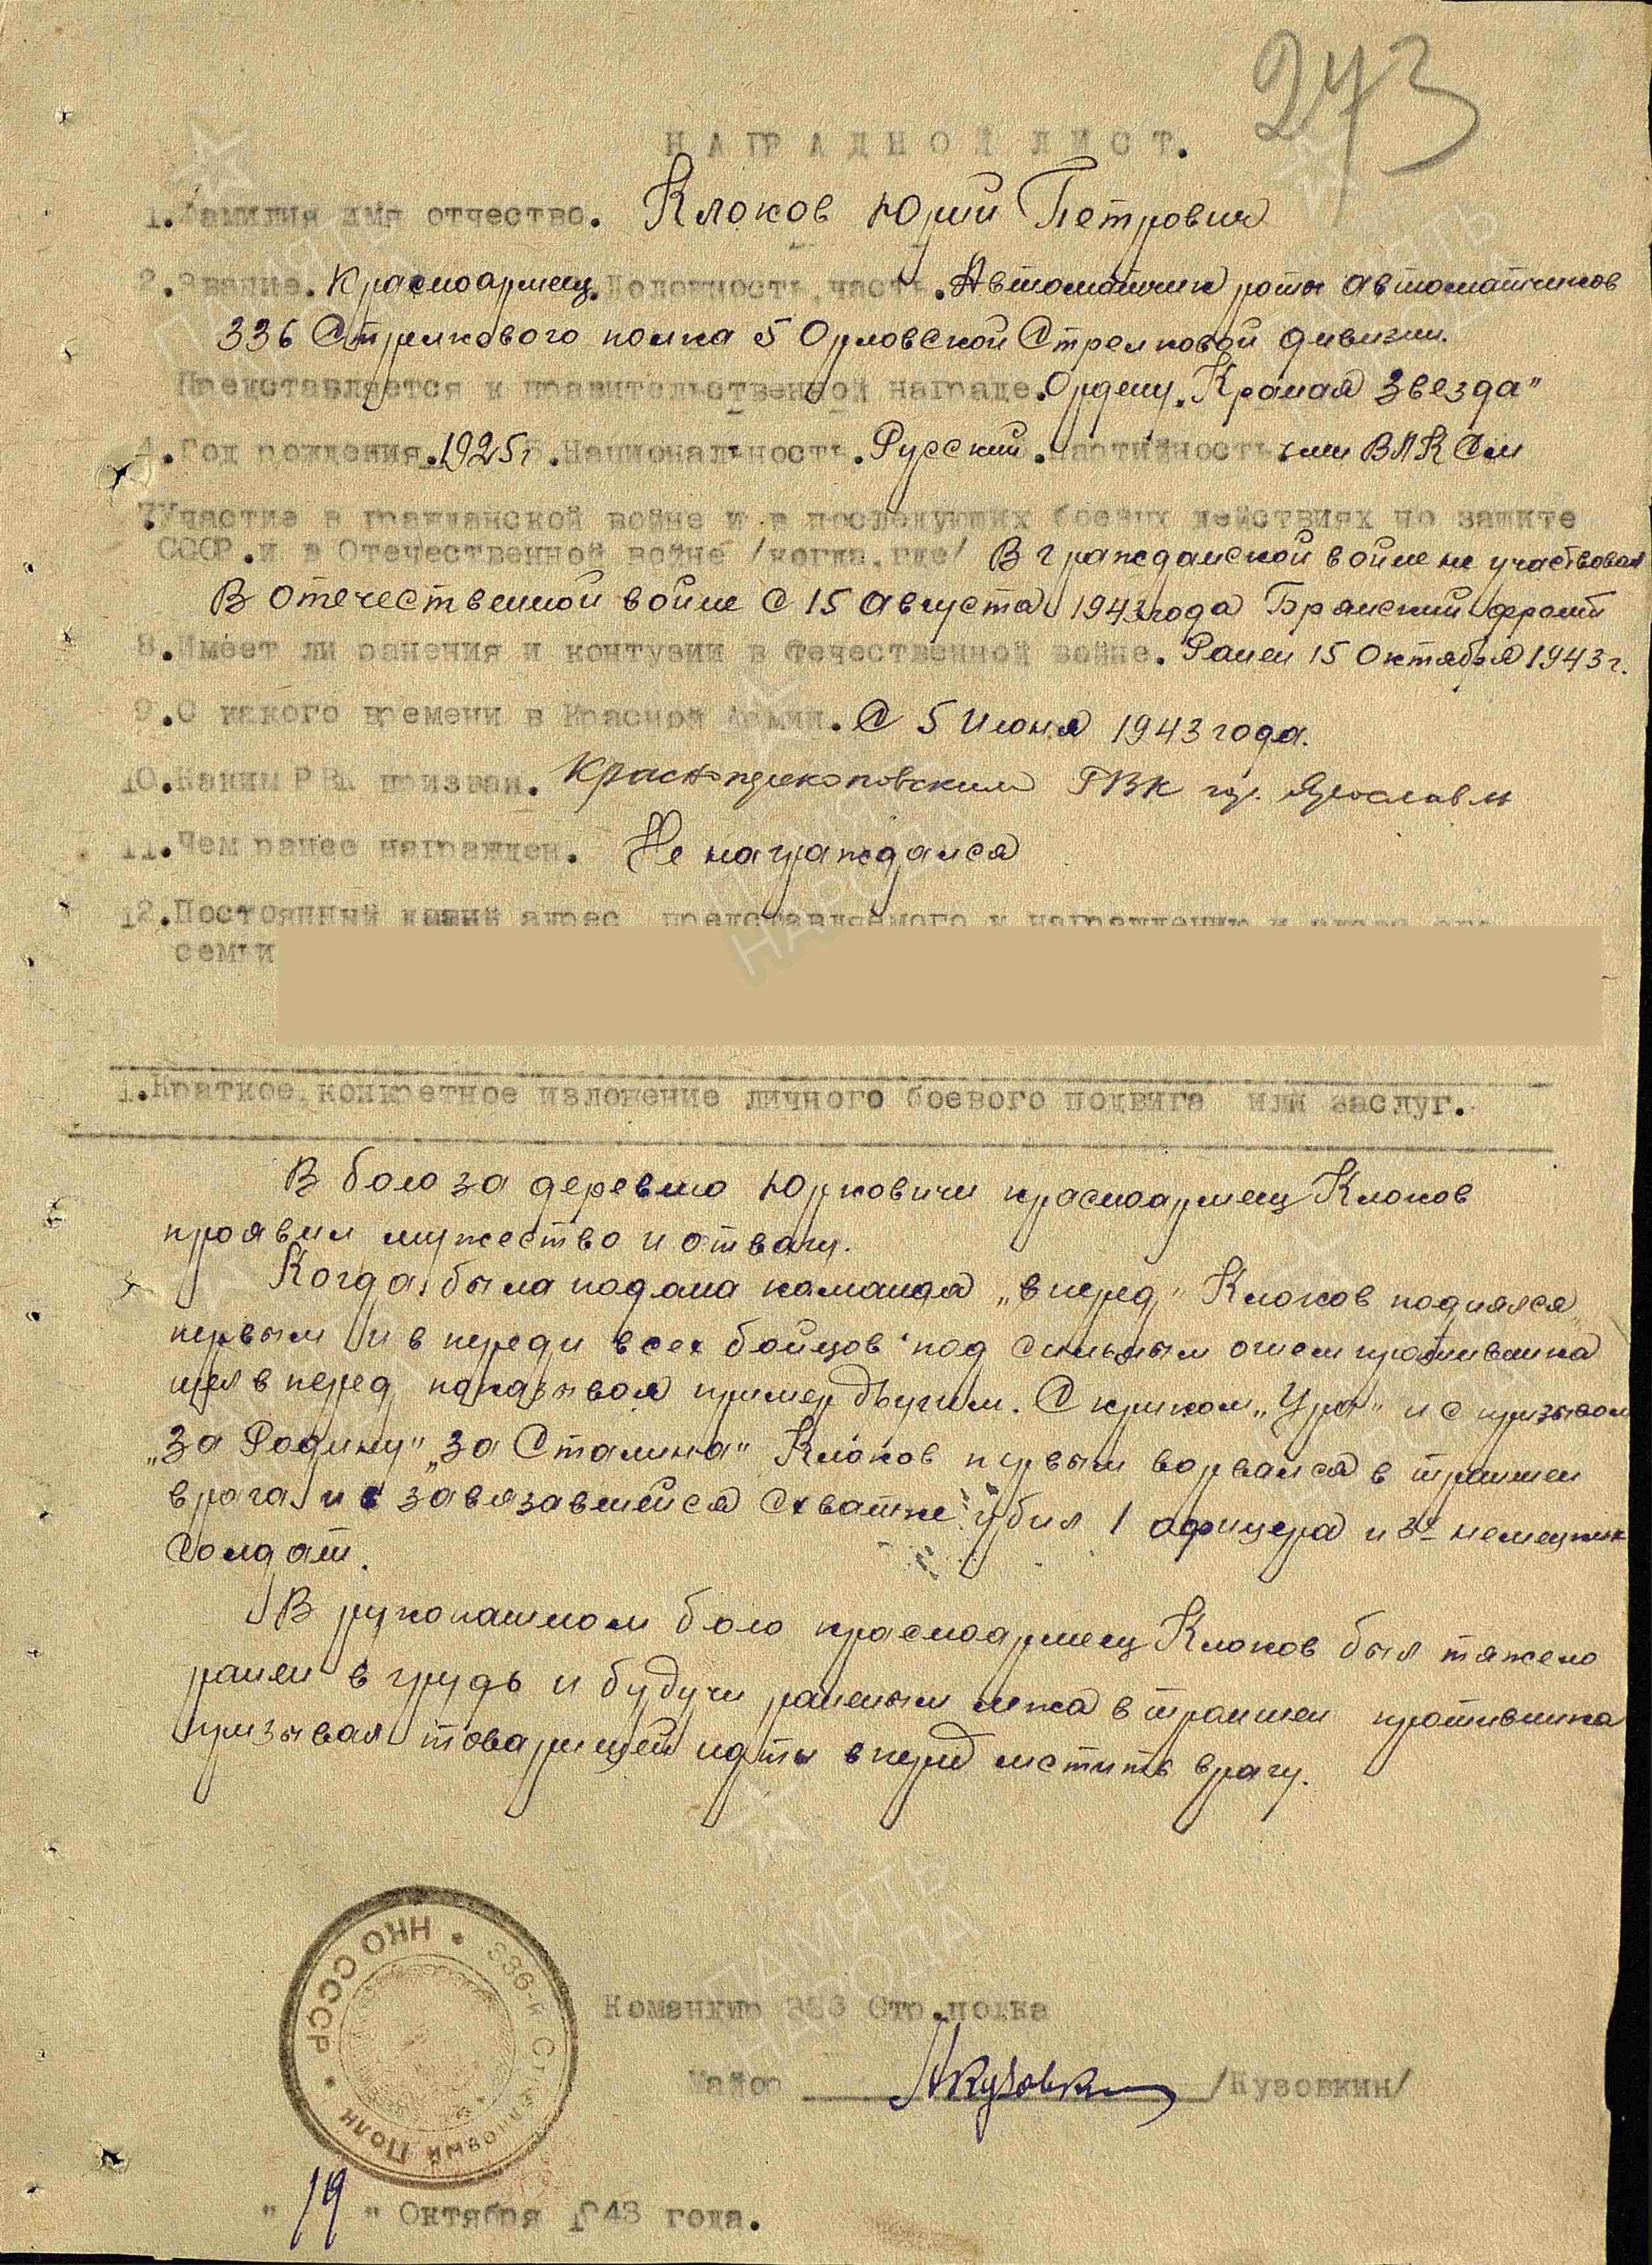 273
НАГРАДНОЙ ЛИСТ.
1. Фамилия имя отчество. Клоков Юрий Петрович
2. Звание. Красноармеец. Должность, часть. Автоматчик роты автоматчиков
336 Стрелкового полка 5 Орловской Стрелковой дивизии.
Представляется к правительственной награде. Ордену „Краная Звезда"
4. Год рождения. 1925г 5. Национальность. Русский. партийность. член ВЛКСМ
7. Участие в гражданской войне и в последующих боевых действиях по защите
СССР. и в Отечественной войне /когда, где/ В гражданской войне не участвовал
В Отечественной войне с 15 Августа 1943 года Брянский фронт
8. Имеет ли ранения и контузии в Отечественной войне. Ранен 15 Октября 1943 г.
9. С какого времени в Красной Армии. С 5 Июня 1943 года.
10. Каким РВК призван. Краснопрекоповским ГВК гор. Ярославль
11. Чем ранее награжден. Не награждался
12. Постоянный адрес представляемого к награждению и
семьи
1. Краткое, конкретное изложение личного боевого подвига или заслуг.
В бою за деревню Юрковичи красноармеец Клоков
проявил мужество и отвагу.
Когда была подана команда „вперед" Клоков поднялся
первым и в переди всех бойцов под сильным огнем противника
шел в перед показывая пример другим. С криком „Ура" и с призывом
„За Родину" „За Сталина" Клоков первым ворвался в траншеи
врага и в завязавшейся схватке убил 1 афицера и 3х немецких
солдат.
В рукопашном бою красноармеец Клоков был тяжело
ранен в грудь и будучи раненым лежа в траншеи противника
призывал товарищей идти вперед мстить врагу.
НКО СССР
336-й Стрелковый Полк
Командир 336 Стр.полка
Майор /Кузовкин/
" 19 " Октября 1943 года.
ПАМЯТЬ
НАРОДА